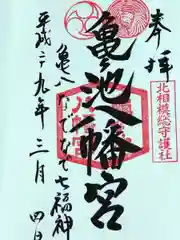 奉拝
北相模総守護社
亀ヶ池八幡宮
亀八めでためで七福神
平成二九年三月四日